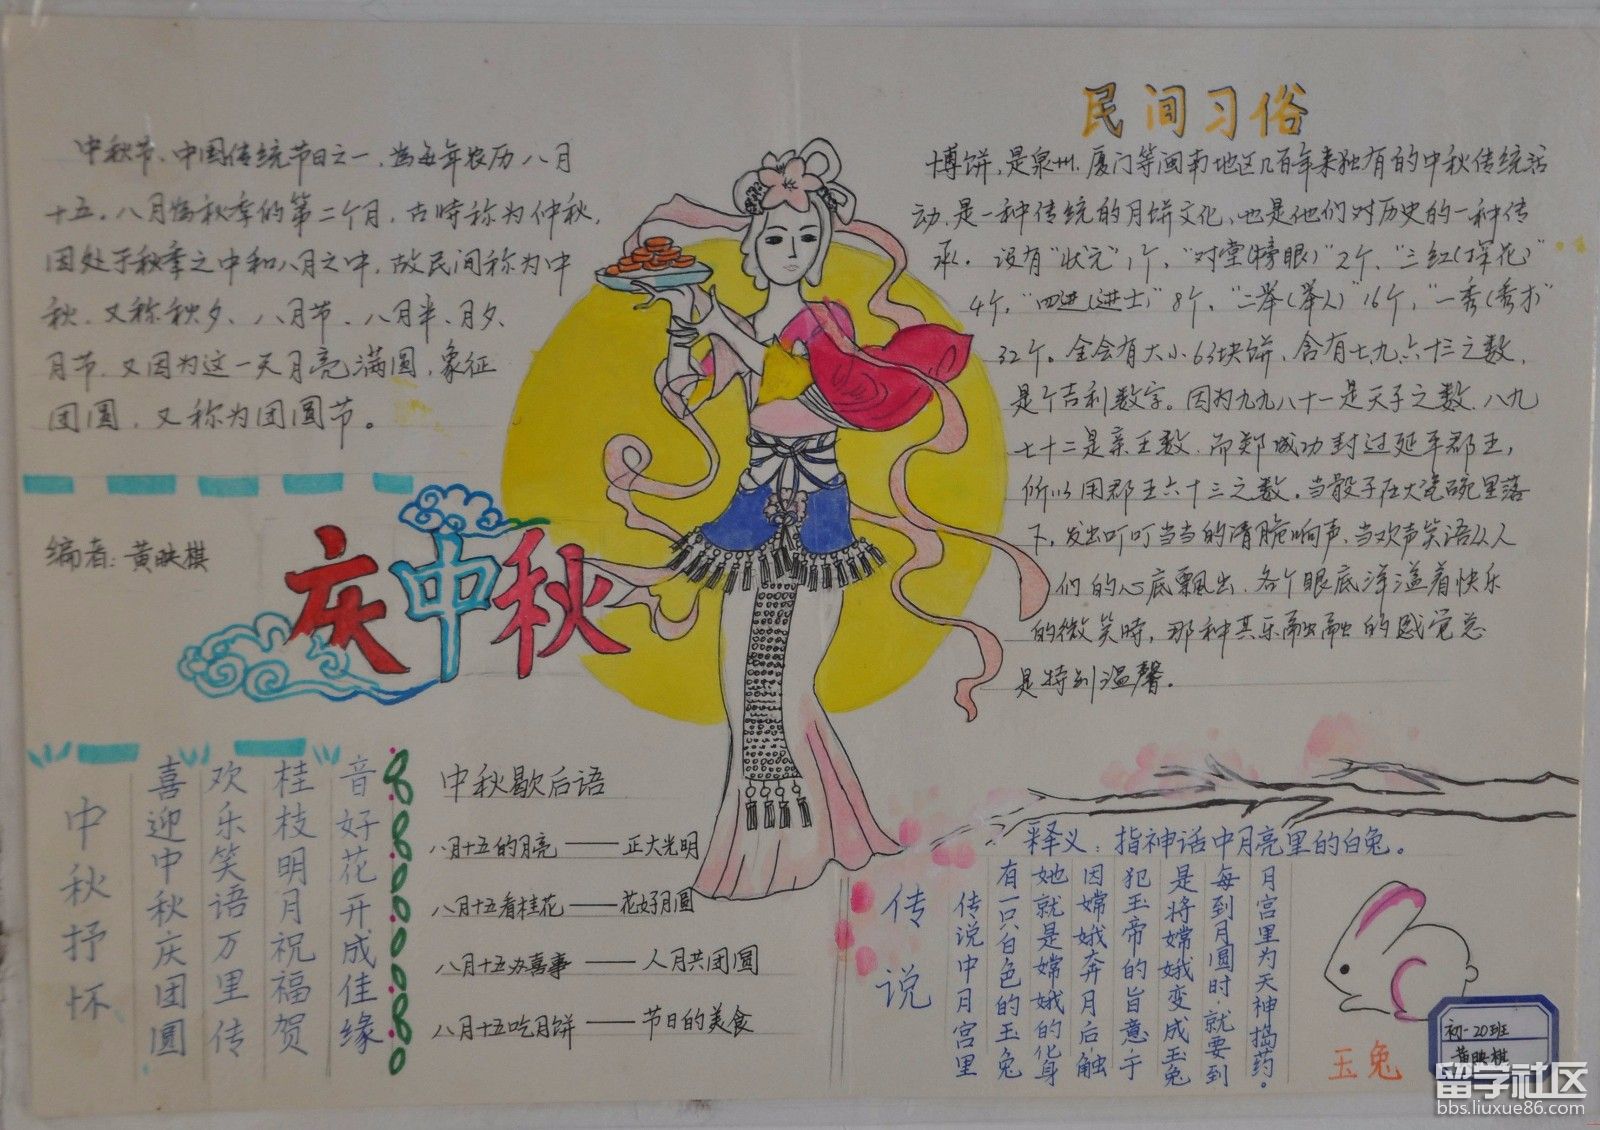 中秋节、中国传统节日之一、为每年农历八月
十五。八月为秋季的第二个月，古时称为仲秋，
因处于秋季之中和八月之中，故民间称为中
秋、又称秋夕、八月节、八月半、月夕、
月节，又因为这一天月亮满圆，象征
团圆，又称为团圆节。
编者：黄映棋
庆中秋
民间习俗
博饼，是泉州、厦门等闽南地区几百年来独有的中秋传统活
动，是一种传统的月饼文化、也是他们对历史的一种传
承。设有“状元”1个，“对堂(榜眼)”2个、“三红(探花)”
4个，“四进(进士)”8个，“二举(举人)”16个，“一秀(秀才)”
32个。全会有大小63块饼，含有七九六十三之数，
是个吉利数字。因为九九八十一是天子之数，八九
七十二是亲王数，而郑成功封过延平郡王，
所以用郡王六十三之数。当骰子在大瓷碗里落
下，发出叮叮当当的清脆响声、当欢声笑语从人
们的心底飘出，各个眼底洋溢着快乐
的微笑时，那种其乐融融的感觉总
是特别温馨。
中秋抒怀
喜迎中秋庆团圆
欢乐笑语万里传
桂枝明月祝福贺
音好花开成佳缘
中秋歇后语
八月十五的月亮——正大光明
八月十五看桂花——花好月圆
八月十五办喜事——人月共团圆
八月十五吃月饼——节日的美食
传说
释义：指神话中月亮里的白兔。
传说中月宫里
有一只白色的玉兔
她就是嫦娥的化身
因嫦娥奔月后，触
犯玉帝的旨意，于
是将嫦娥变成玉兔
每到月圆时，就要到
月宫里为天神捣药。
玉兔
初一20班
黄映棋
留学社区
bbs.liuxue86.com